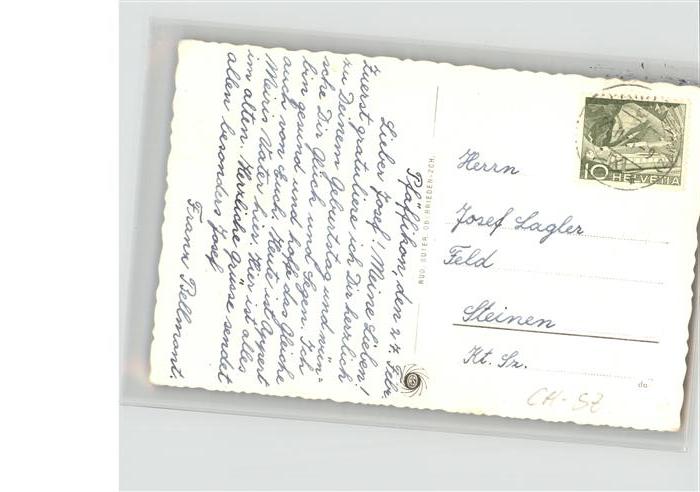 Pfäffikon den 24. Febr.
Lieber Josef! Meine Lieben!
Zuerst gratuliere ich Dir herzlich
zu Deinem Geburtstag und wün-
sche Dir Glück und Segen. Ich
bin gesund und hoffe das Gleiche
auch von Euch. Heute ist
Meiris Vater hier. Hier ist alles
im alten. Herzliche Grüsse sendet
allen besonders Josef
Franz Bellmont.
RUD. SUTER, OBERRIEDEN-ZCH.
10 HELVETIA
Herrn
Josef Lagler
Feld
Steinen
Kt. Sz.
do
CH-SZ